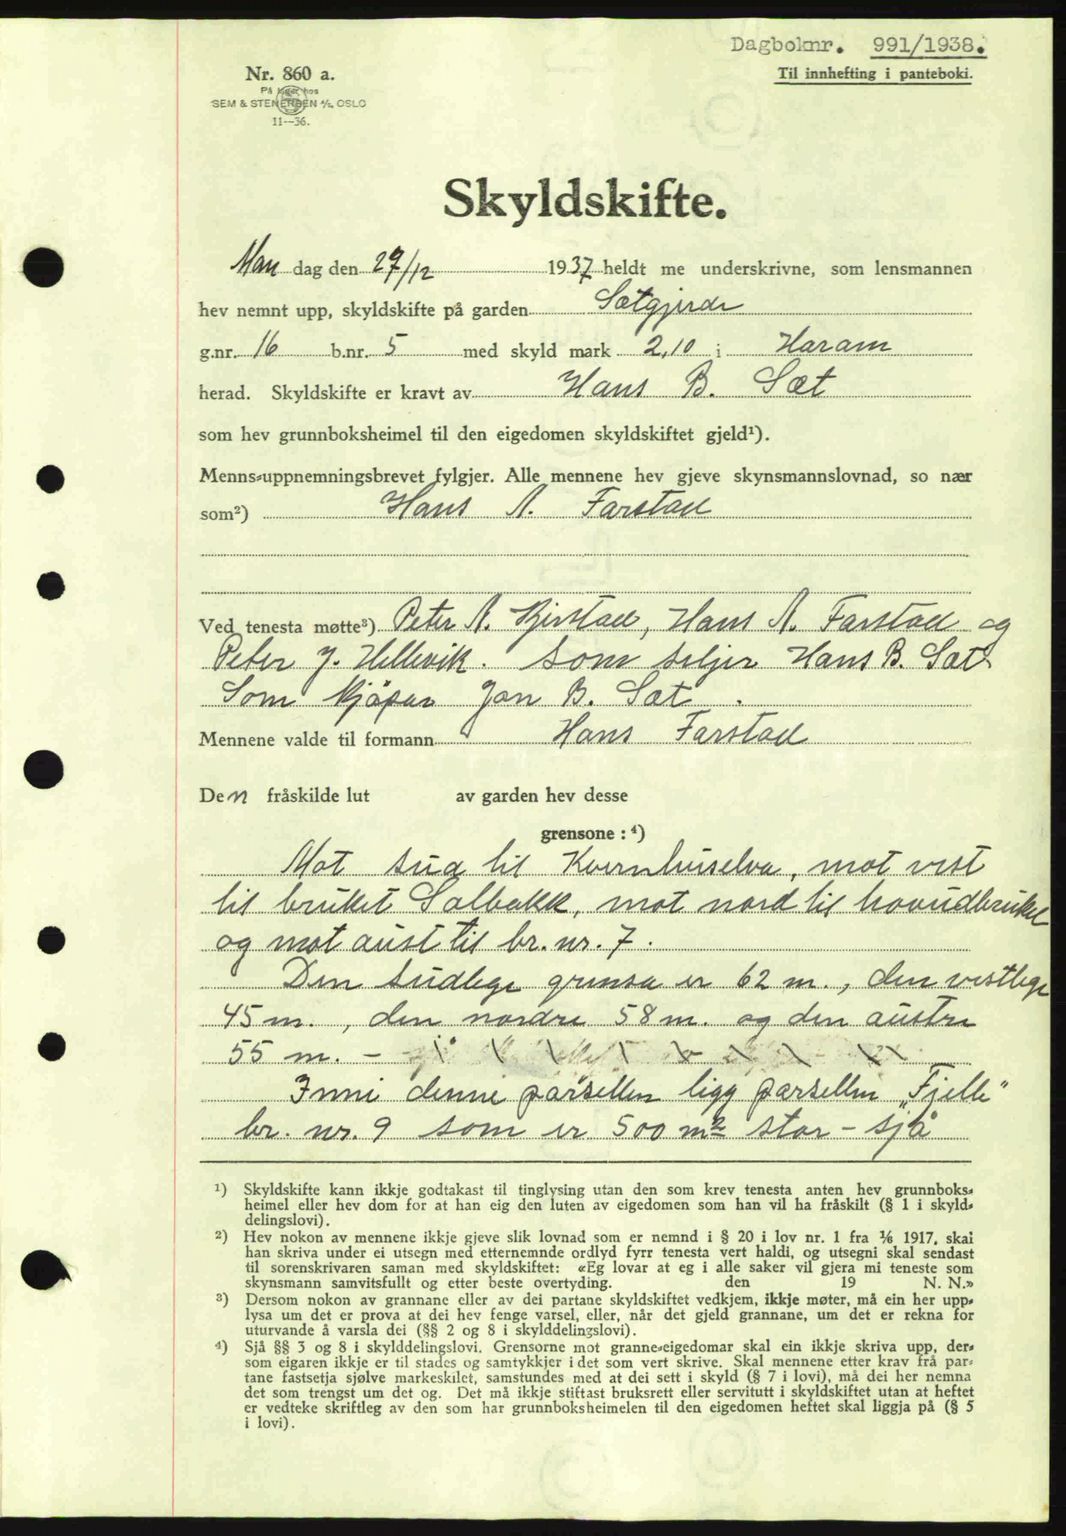 Dagboknr. 991/1938.
Til innhefting i panteboki.
Nr. 860 a.
På lager hos
SEM & STENERSEN A/S. OSLO
11—36.
Skyldskifte.
Man dag den 27/12 1937 heldt me underskrivne, som lensmannen
hev nemnt upp, skyldskifte på garden Sætgjerde
g.nr. 16 b.nr. 5 med skyld mark 2,10 i Haram
herad. Skyldskifte er kravt av Hans B. Sæt
som hev grunnboksheimel til den eigedomen skyldskiftet gjeld¹).
Menns-uppnemningsbrevet fylgjer. Alle mennene hev gjeve skynsmannslovnad, so nær
som²) Hans A. Farstad
Ved tenesta møtte³) Peter A. Kjerstad, Hans A. Farstad og
Peter J. Hellevik. Som seljer Hans B. Sæt
Som kjøpar Jon B. Sæt.
Mennene valde til formann Hans Farstad
Den fråskilde lut av garden hev desse
grensone : ⁴)
Mot sud til Kvernhuselva, mot vest
til bruket Solbakk, mot nord til hovudbruket
og mot aust til br. nr. 7.
Den sudlege grensa er 62 m., den vestlege
45 m., den nordre 58 m. og den austre
55 m. -
Inni denne parsellen ligg parsellen "Fjelle"
br. nr. 9 som er 500 m² stor - sjå
¹) Skyldskifte kann ikkje godtakast til tinglysing utan den som krev tenesta anten hev grunnboks-
heimel eller hev dom for at han eig den luten av eigedomen som han vil ha fråskilt (§ 1 i skyld-
delingslovi).
²) Hev nokon av mennene ikkje gjeve slik lovnad som er nemnd i § 20 i lov nr. 1 fra 1/6 1917, skal
han skriva under ei utsegn med etternemnde ordlyd fyrr tenesta vert haldi, og utsegni skal sendast
til sorenskrivaren saman med skyldskiftet: «Eg lovar at eg i alle saker vil gjera mi teneste som
skynsmann samvitsfullt og etter beste overtyding. den 19 N. N.»
³) Dersom nokon av grannane eller av dei partane skyldskiftet vedkjem, ikkje møter, må ein her upp-
lysa um det er prova at dei hev fenge varsel, eller, når det gjeld grannane, um det er rekna for
uturvande å varsla dei (§§ 2 og 8 i skylddelingslovi).
⁴) Sjå §§ 3 og 8 i skylddelingslovi. Grensorne mot granne-eigedomar skal ein ikkje skriva upp, der-
som eigaren ikkje er til stades og samtykkjer i det som vert skrive. Skal mennene etter krav frå par-
tane fastsetja sjølve markeskilet, samstundes med at dei sett i skyld (§ 7 i lovi), må dei her nemna
det som trengst um det og. Det må ikkje stiftast bruksrett eller servitutt i skyldskiftet utan at heftet
er vedteke skriftleg av den som har grunnboksheimelen til den eigedomen heftet skal liggja på (§ 5
i lovi).